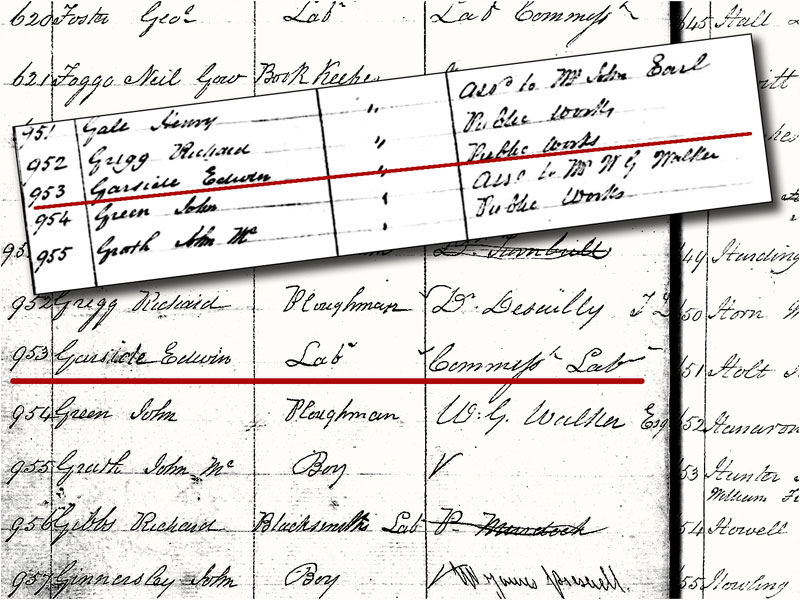 620 Foster Geo. Labr Labr Commesst
621 Foggo Neil Gow Book Keeper
951 Gale Henry " Assd to Mr John Earl
952 Gregg Richard " Public Works
953 Garside Edwin " Public Works
954 Green John " Assd to Mr W G Walker
955 Grath John Mc " Public Works
Dr. Turnbull
952 Gregg Richard Ploughman Dr. Desailly
953 Garside Edwin Labr Commesst Labr
954 Green John Ploughman W. G. Walker Esq
955 Grath John Mc Boy
956 Gibbs Richard Blacksmiths Lab P. Murdoch
957 Ginnersley John Boy
645 Hall
49 Harding
50 Horn
51 Holt
52
53 Hunter
William
54 Howell
55 Howling